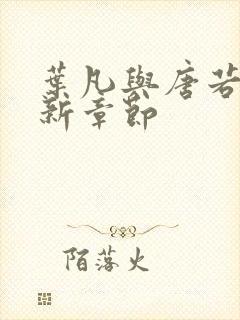 葉凡與唐若
新章節
陌落火